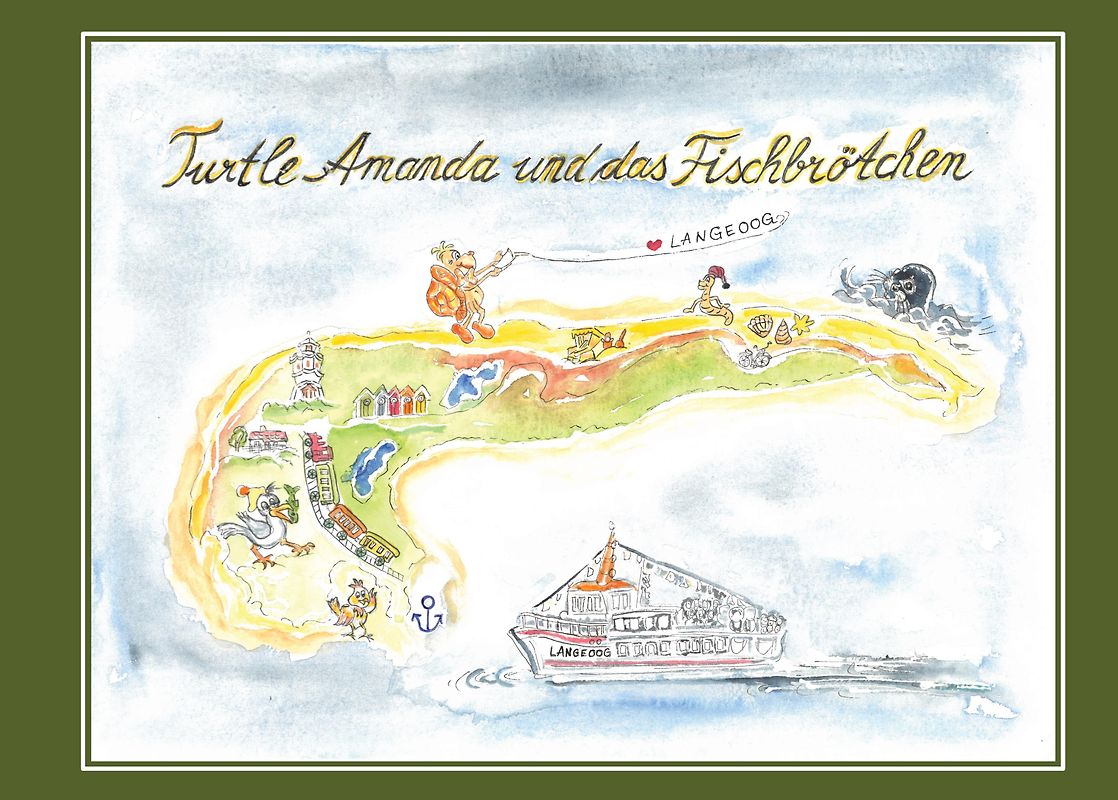 Turtle Amanda und das Fischbrötchen
LANGEOOG
LANGEOOG